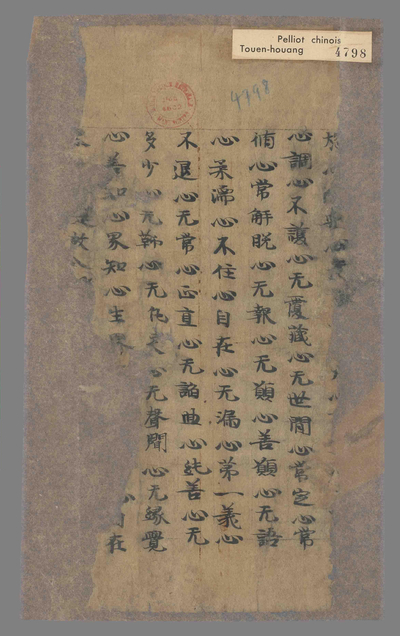 Pelliot chinois
Touen-houang 4798
4798
心調心不護心无覆藏心无世間心常定心常
脩心常解脫心无報心无願心善願心无語
心柔濡心不住心自在心无漏心第一義心
不退心无常心正直心无諂曲心純善心无
多少心无鞕心无凡夫心无聲聞心无緣覺
心善知心界知心生界 自在
是故